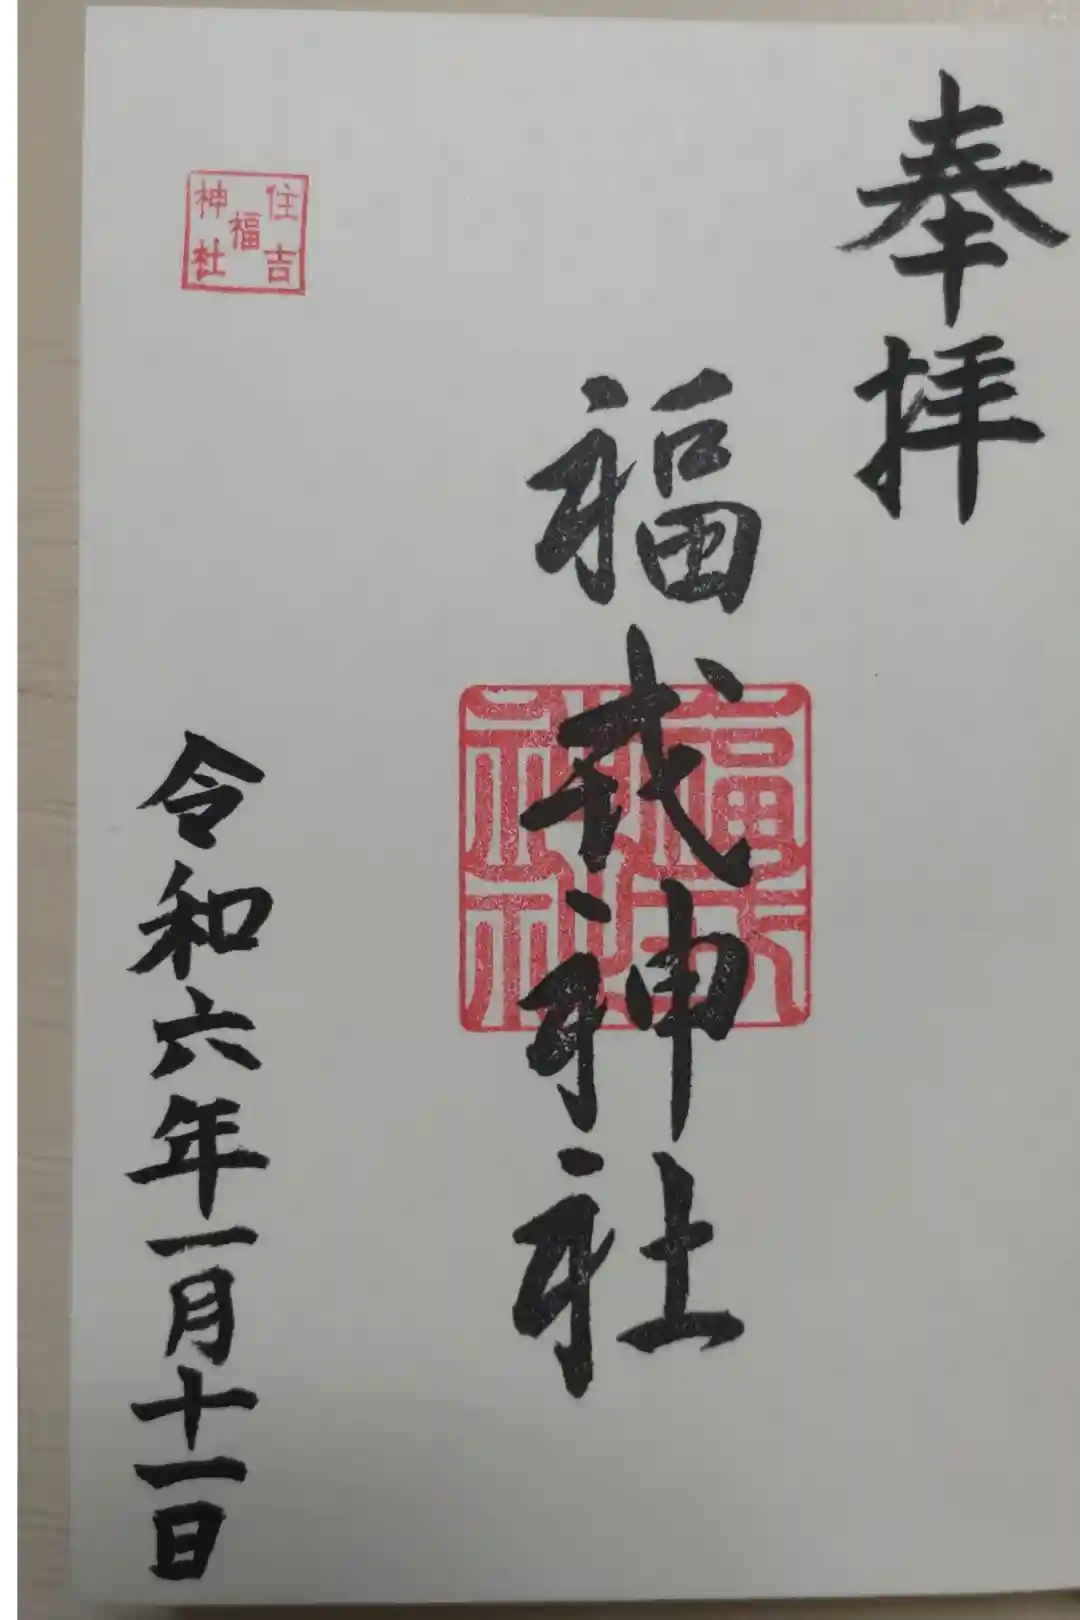 奉拝
福戎神社
福戎
神社
住吉
福
神社
令和六年一月十一日